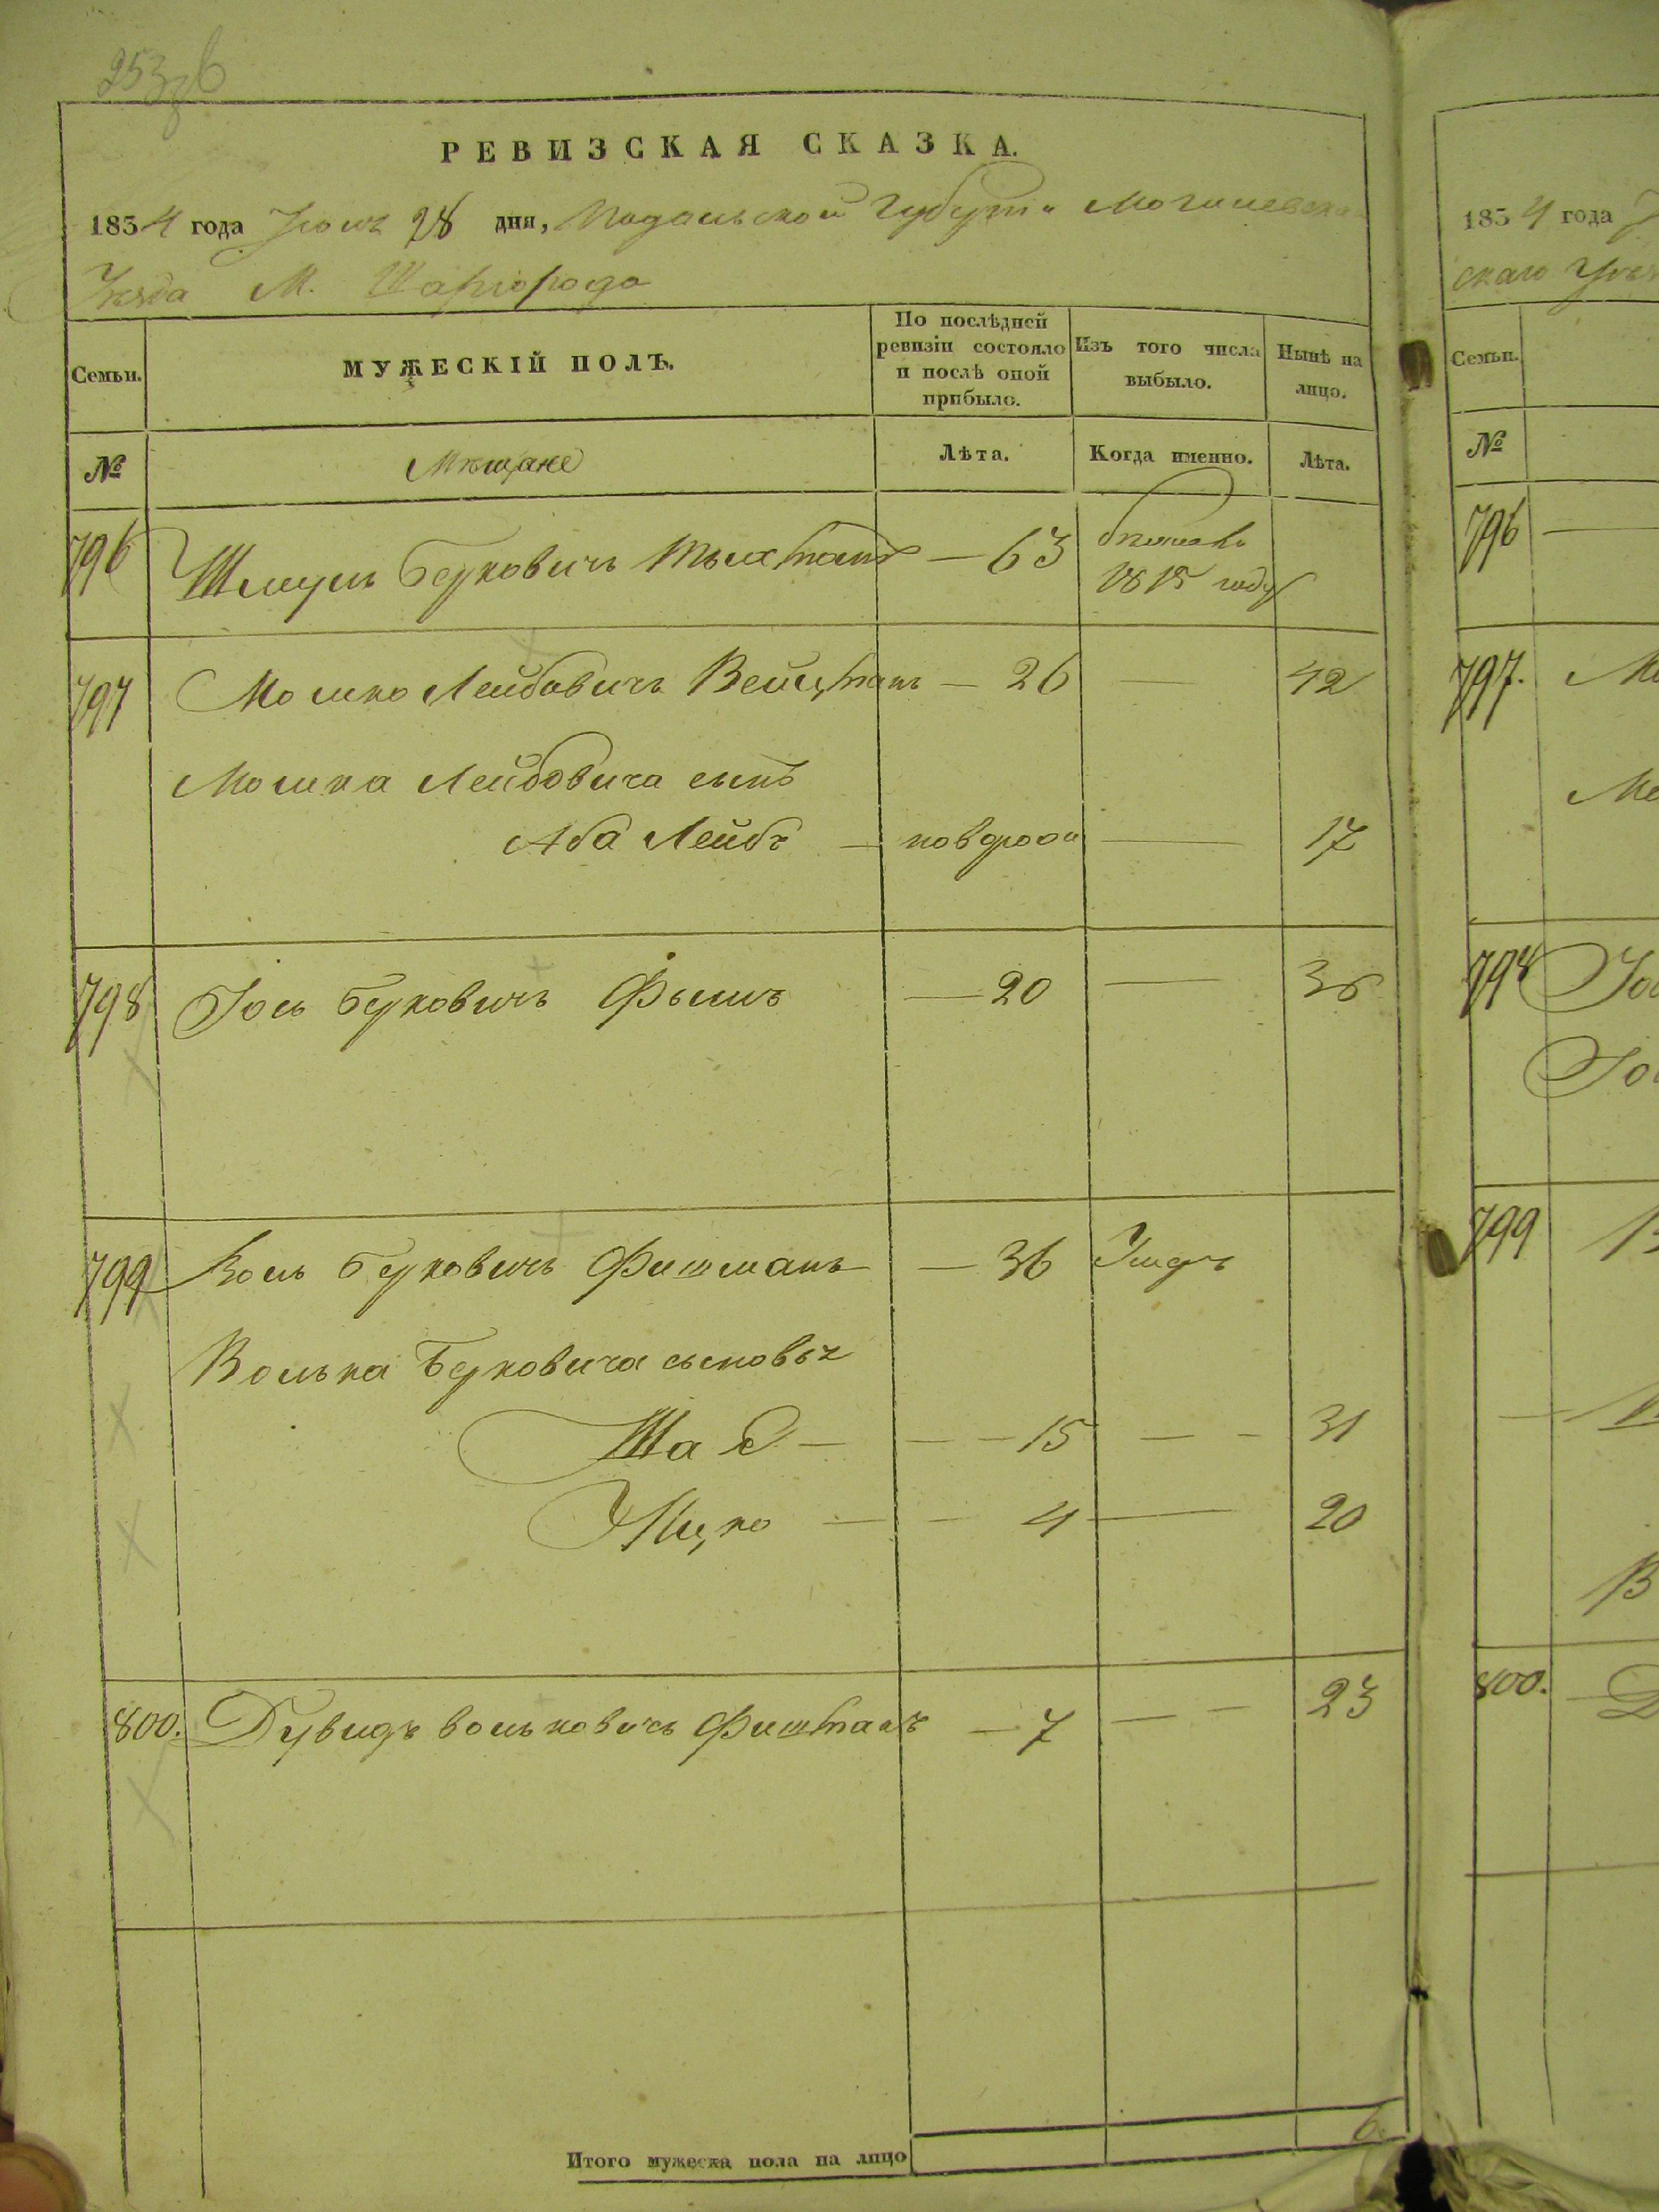 РЕВИЗСКАЯ СКАЗКА.
1854 года 28 дня, Подольской Губернiи Могилевска
Уезда М. Шаргорода
Семьи.
МУЖЕСКІЙ ПОЛЪ.
По послѣдней ревизіи состояло и послѣ оной прибыло.
Изъ того числа выбыло.
Нынѣ на лицо.
№
Мѣщане
Лѣта.
Когда именно.
Лѣта.
796 Шмуль Берковичъ — 63
году
797 Мошко Лейбовичъ Вейцманъ — 26 — 42
Мошка Лейбовича сынъ
Аба Лейбъ — — 17
798 Іось Берковичъ — 20 — 36
799 Берковичъ Фишманъ — 36
Волька Берковича сыновья
Шаё — — — 15 — — 31
Ицко — — 4 — 20
800. Дувидъ Вольковичъ Фишманъ — 7 — — 23
Итого мужеска пола на лицо 6.
1854 года
скаго
Семьи.
№
796 —
797.
798
799
800.